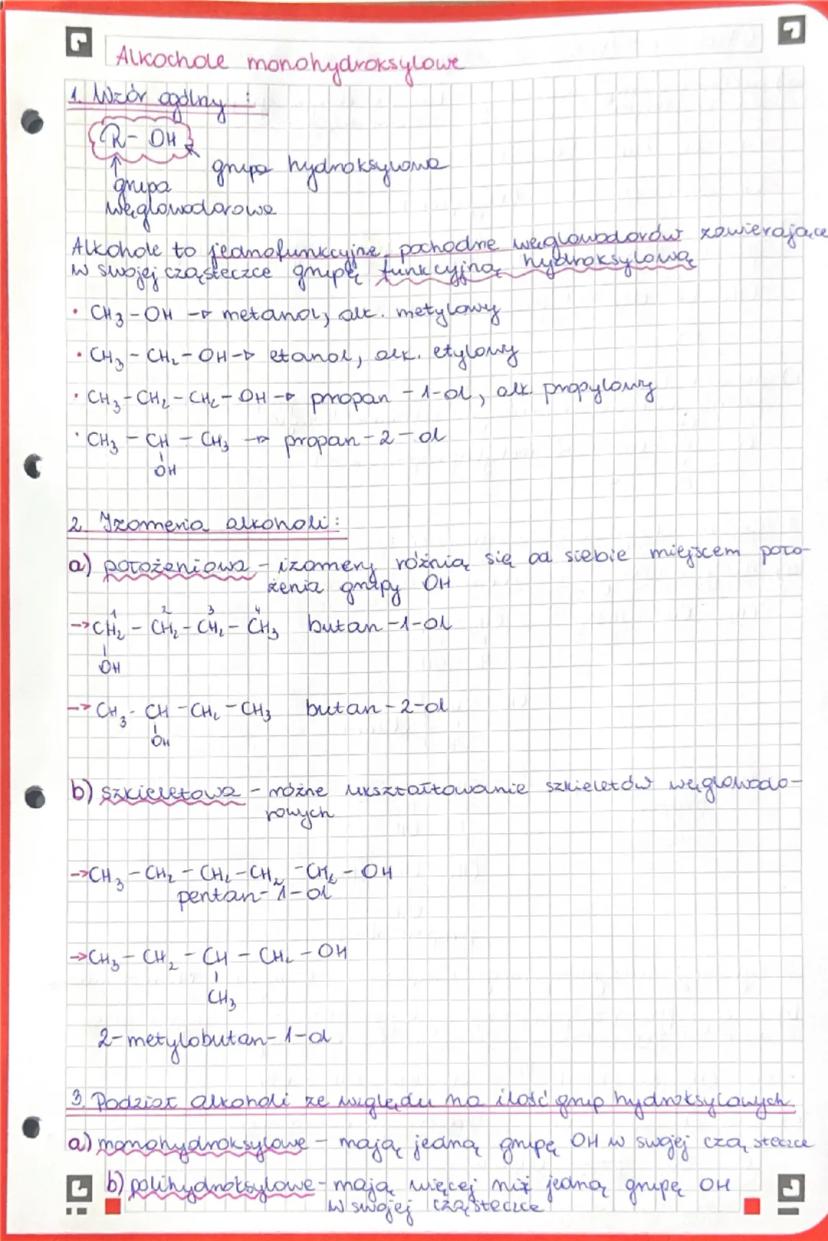 Alkochole monohydroksylowe
1. Wzór ogólny :
R - OH
grupa hydroksylowa
grupa
węglowodorowa
Alkohole to jednofunkcyjne pochodne węglowodorów zawierające
w swojej cząsteczce grupę funkcyjną hydroksylową
• CH3 - OH → metanol, alk. metylowy
• CH3 - CH2 - OH → etanol, alk. etylowy
• CH3 - CH2 - CH2 - OH → propan - 1-ol, alk propylowy
• CH3 - CH - CH3 → propan - 2 - ol
OH
2. Izomeria alkoholi:
a) położeniowa - izomery różnią się od siebie miejscem poło-
żenia grupy OH
1 2 3 4
→ CH2 - CH2 - CH2 - CH3 butan -1-ol
OH
→ CH3 - CH - CH2 - CH3 butan - 2-ol
OH
b) szkieletowa - różne ukształtowanie szkieletów węglowodo-
rowych
→ CH3 - CH2 - CH2 - CH2 - CH2 - OH
pentan - 1-ol
→ CH3 - CH2 - CH - CH2 - OH
CH3
2-metylobutan- 1-ol
3. Podział alkoholi ze względu na ilość grup hydroksylowych
a) monohydroksylowe - mają jedną grupę OH w swojej cząsteczce
b) polihydroksylowe - mają więcej niż jedną grupę OH
w swojej cząsteczce